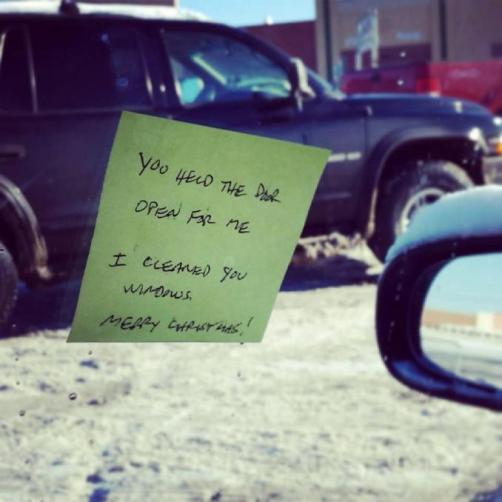 YOU HELD THE DOOR
OPEN FOR ME
I CLEANED YOU
WINDOWS.
MERRY CHRISTMAS!